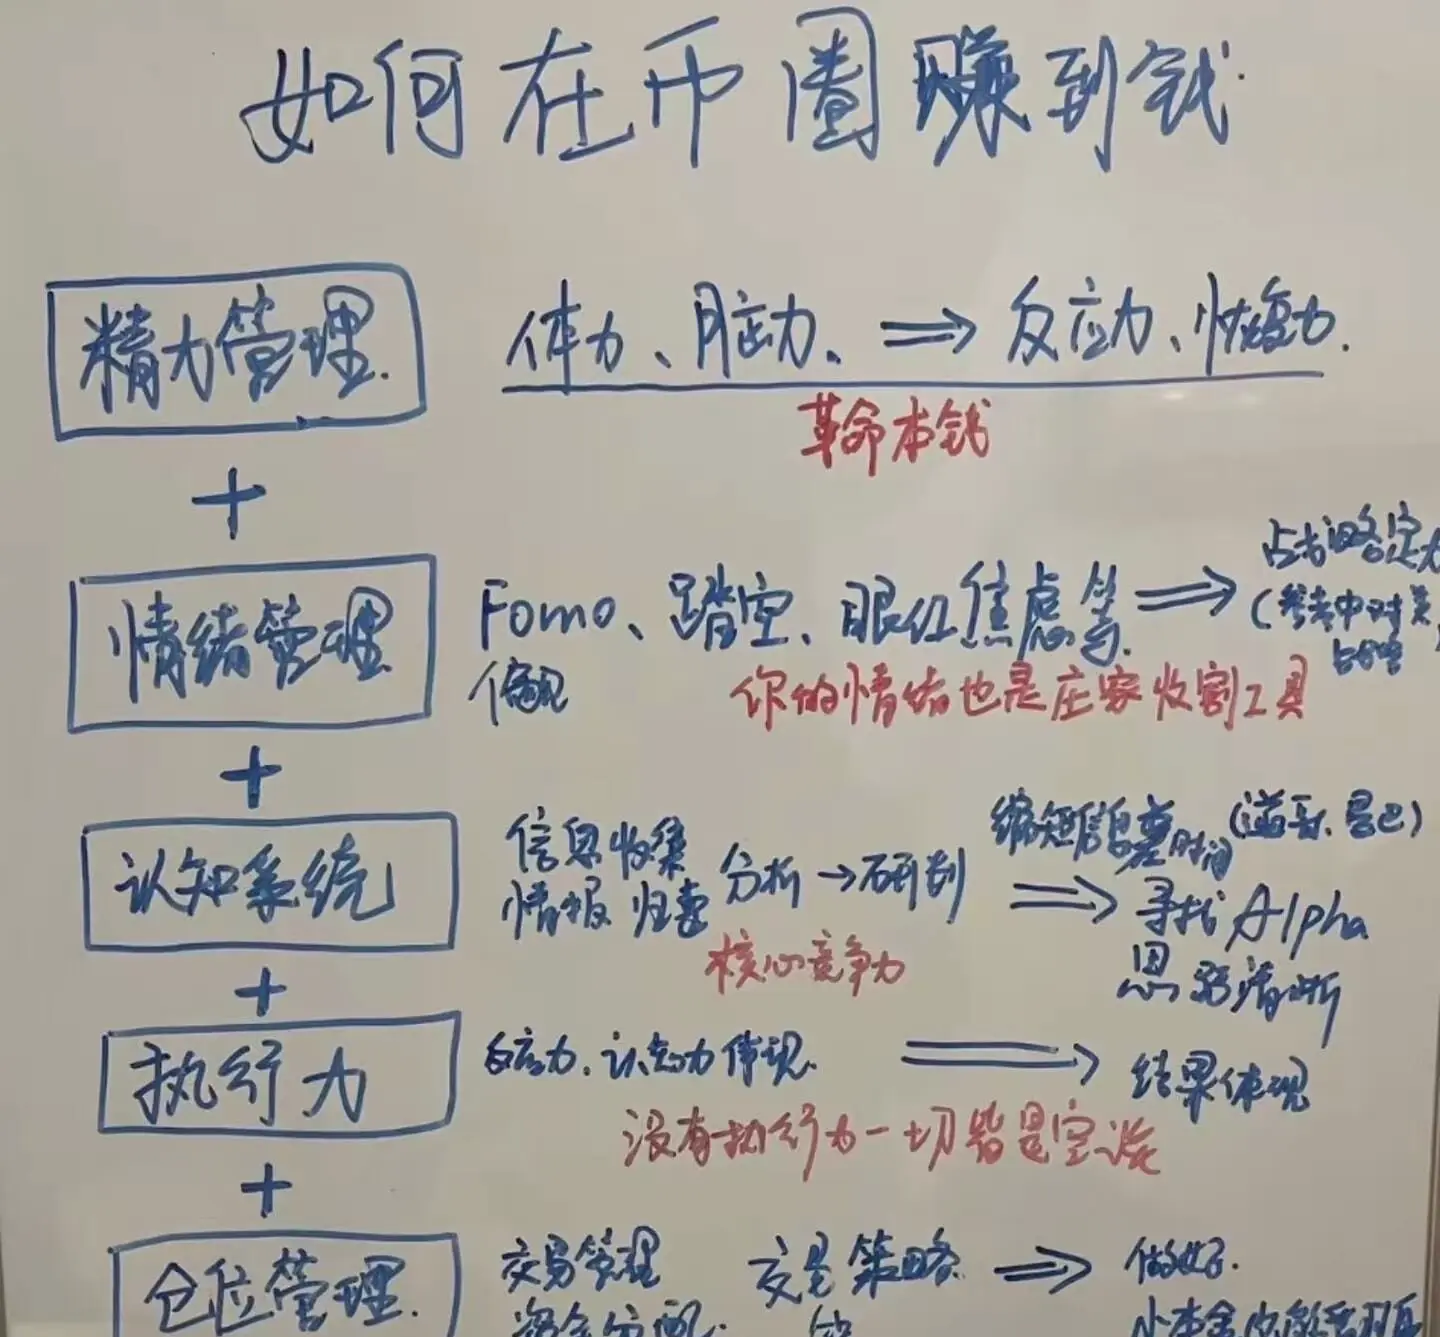 如何在币圈赚到钱
精力管理
体力、脑力、⇒反应力、恢复力.
革命本钱
+
情绪管理
Fomo、踏空、眼红焦虑等. ⇒ 战略定力
偏见
(参考中对美战略
你的情绪也是庄家收割工具
+
认知系统
信息收集
情报归纳
分析→研判 ⇒
核心竞争力
缩短信息差时间
寻找Alpha
思路清晰
+
执行力
反应力、认知力体现. ⇒ 结果体现
没有执行力一切皆是空谈
+
仓位管理.
交易管理 交易策略 ⇒ 做好.
资金分配.